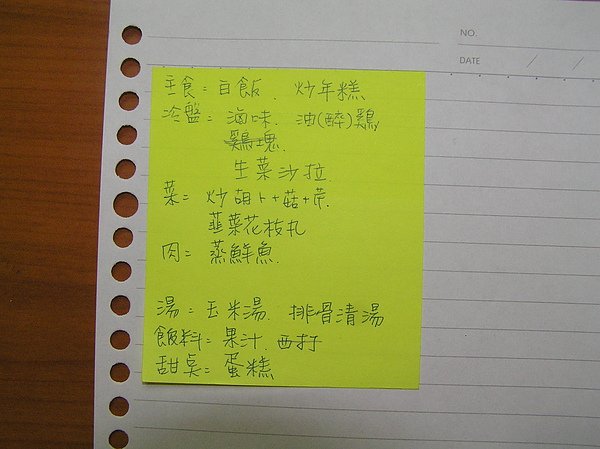 NO.
DATE / /
主食=白飯、炒年糕
冷盤=滷味、油(醉)鷄
鷄塊
生菜沙拉
菜=炒胡卜+菇+芹
韮菜花枝丸
肉=蒸鮮魚
湯=玉米湯、排骨清湯
飯料=果汁、西打
甜桌=蛋糕